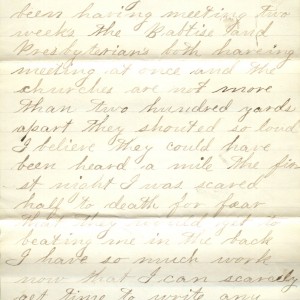 been having meeting two
weeks the Babtise and
Presbyterians both having
meeting at once and the
churches are not more
than two hundred yards
apart they shouted so loud
I believe they could have
been heard a mile the fir
st night I was scared
half to death for fear
that they would get to
beating me in the back
I have so much work
now that I can scarcely
get time to write any